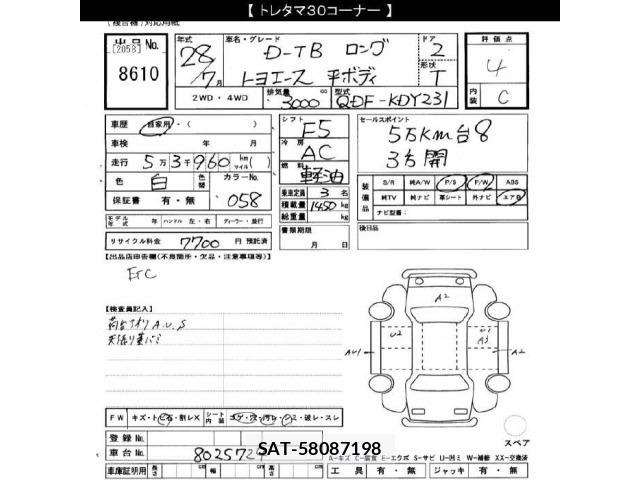 【 トレタマ30コーナー 】
(複合種)対応用紙
出品No.
[2058]
8610
年式 車名・グレード ドア
28 D-TB ロング 2
7月 トヨエース 平ボディ 形状 T
2WD・4WD 排気量 3000 cc 型式 QDF-KDY231
評価点
4
内装 C
車歴 自家用・( )
車検 年 月
走行 5万3千960 km マイル ( )
色 白 色替 カラーNo.
保証書 有・無 058
モデル年式 年 ハンドル 左・右 ディーラー・並行
リサイクル料金 7700 円 預託済
シフト F5
冷房 AC
燃料 軽油
乗車定員 3 名
積載量 1450 kg
総重量 kg
書類期限
月 日
セールスポイント
5万KM台8
3方開
装備品 S/R 純A/W P/S P/W ABS
純TV 純ナビ 革シート 外ナビ エアB
ナビ型番:
後日品
【出品店申告欄(不良箇所・欠品・注意事項等)】
ETC
【検査員記入】
荷台アオリA.U.S
天張り
A2
U2
A3
AU1
A2
FW キズ・トビ石・割レX シート内装 コゲ・穴・汚レ・破レ・スレ
登録No.
車台No. 802572
SAT-58087198
スペア
車庫証明用 長さ cm 幅 cm 高さ
A-キズ C-腐食 E-エクボ S-サビ U-凹ミ W-補修 XX-交換済
工具 有・無 ジャッキ 有・無